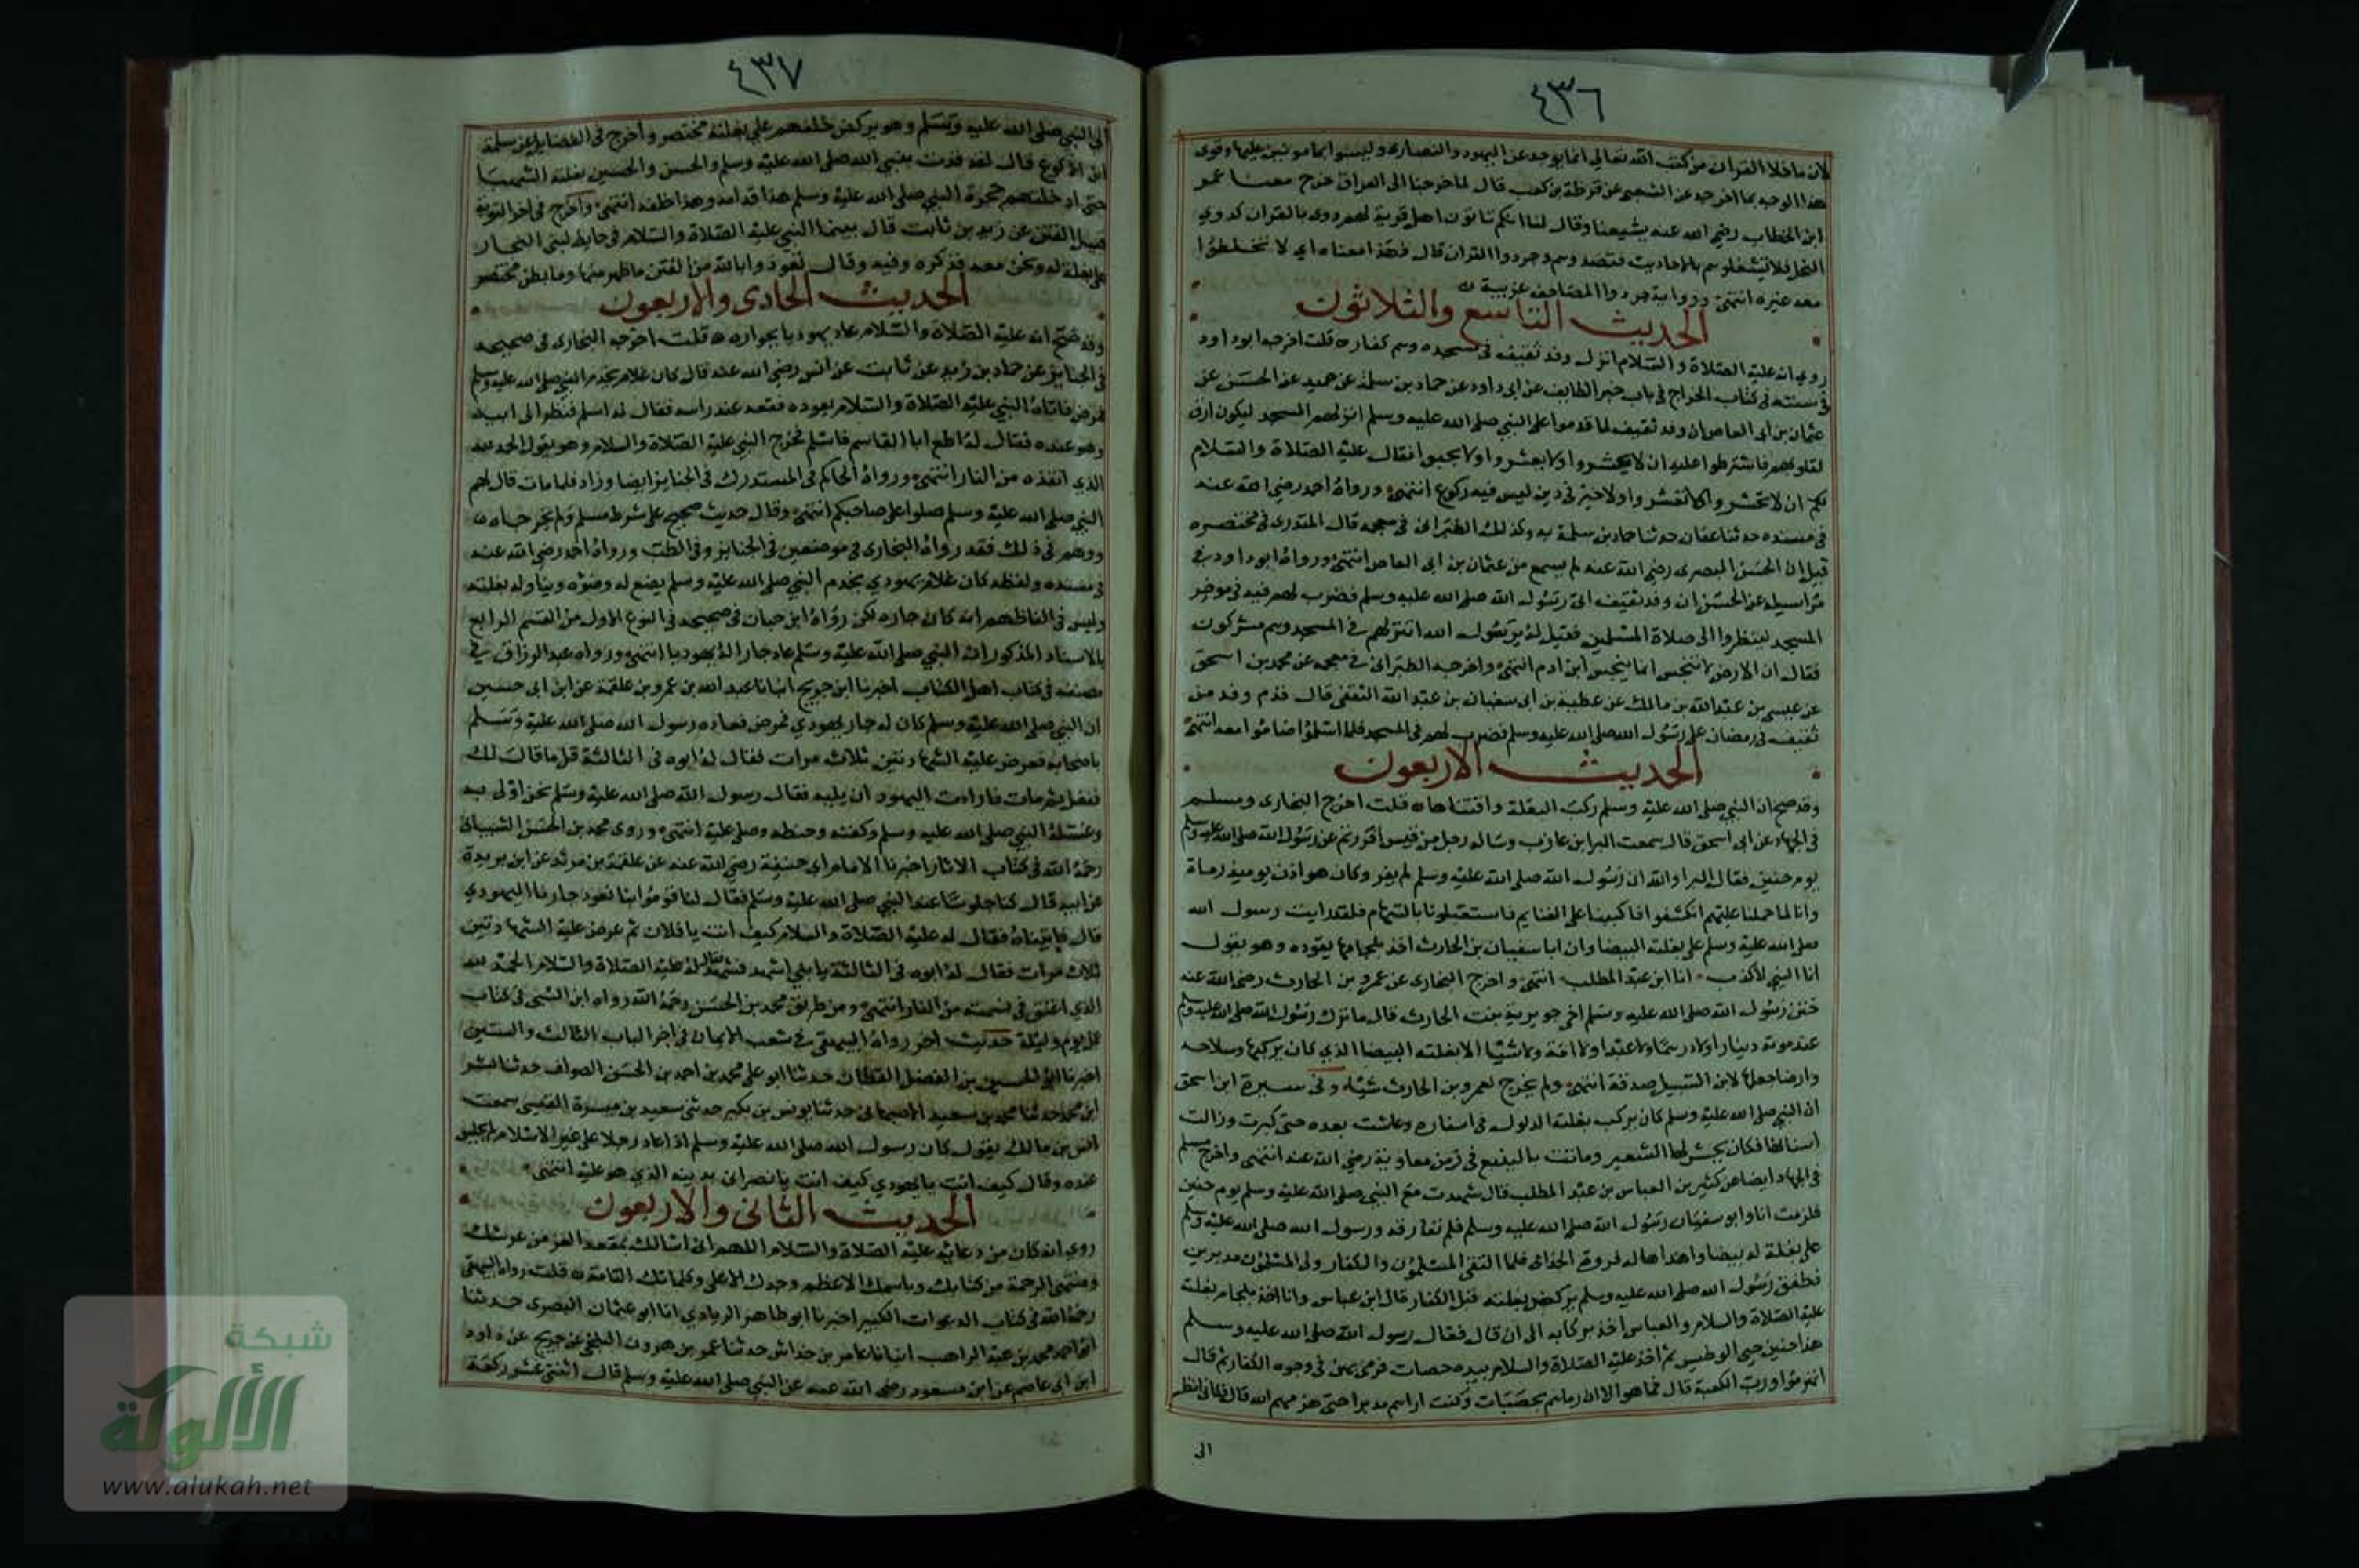 ٤٣٦
لان ما خلا القران من كتب الله تعالى انما يوخذ عن اليهود والنصارى وليسوا بمامونين عليها وقوى
هذا الوجه بما اخرجه عن الشعبي عن قرظة بن كعب قال لما خرجنا الى العراق خرج معنا عمر
ابن الخطاب رضي الله عنه يشيعنا وقال لنا انكم تاتون اهل قرية لهم دوي بالقران كدوي
النحل فلا تشغلوهم بالاحاديث فتصدوهم وجردوا القران قال فهذا معناه اي لا تخلطوا
معه غيره انتهى ورواية جردوا المصاحف غريبة
الحديث التاسع والثلاثون
روي انه عليه الصلاة والسلام انزل وفد ثقيف في مسجده وهم كفار قلت اخرجه ابو داود
في سننه في كتاب الخراج في باب خبر الطايف عن ابي داود عن حماد بن سلمة عن حميد عن الحسن عن
عثمان بن ابي العاص ان وفد ثقيف لما قدموا على النبي صلى الله عليه وسلم انزلهم المسجد ليكون ارق
لقلوبهم فاشترطوا عليه ان لا يحشروا ولا يعشروا ولا يجبوا فقال عليه الصلاة والسلام
لكم ان لا تحشروا ولا تعشروا ولا خير في دين ليس فيه ركوع انتهى ورواه احمد رضي الله عنه
في مسنده حدثنا عفان حدثنا حماد بن سلمة به وكذلك الطبراني في معجمه قال المنذري في مختصره
قيل ان الحسن البصري رضي الله عنه لم يسمع من عثمان بن ابي العاص انتهى ورواه ابو داود في
مراسيله عن الحسن ان وفد ثقيف اتى رسول الله صلى الله عليه وسلم فضرب لهم قبة في موخر
المسجد لينظروا الى صلاة المسلمين فقيل له يا رسول الله اتنزلهم في المسجد وهم مشركون
فقال ان الارض لا تنجس انما ينجس ابن ادم انتهى واخرجه الطبراني في معجمه عن محمد بن اسحق
عن عيسى بن عبد الله بن مالك عن عطية بن ابي سفيان بن عبد الله الثقفي قال قدم وفد من
ثقيف في رمضان على رسول الله صلى الله عليه وسلم فضرب لهم في المسجد فلما اسلموا صاموا معه انتهى
الحديث الاربعون
وقد صح ان النبي صلى الله عليه وسلم ركب البغلة واقتناها قلت اخرج البخاري ومسلم
في الجهاد عن ابي اسحق قال سمعت البرا بن عازب وساله رجل من قيس افررتم عن رسول الله صلى الله عليه وسلم
يوم حنين فقال البرا والله ان رسول الله صلى الله عليه وسلم لم يفر وكان هوازن يوميذ رماة
وانا لما حملنا عليهم انكشفوا فاكببنا على الغنايم فاستقبلونا بالسهام فلقد رايت رسول الله
صلى الله عليه وسلم على بغلته البيضا وان ابا سفيان بن الحارث اخذ بلجامها يقوده وهو يقول
انا النبي لا كذب انا ابن عبد المطلب انتهى واخرج البخاري عن عمرو بن الحارث رضي الله عنه
ختن رسول الله صلى الله عليه وسلم اخي جويرية بنت الحارث قال ما ترك رسول الله صلى الله عليه وسلم
عند موته دينارا ولا درهما ولا عبدا ولا امة ولا شيئا الا بغلته البيضا الذي كان يركبها وسلاحه
وارضا جعلها لابن السبيل صدقة انتهى ولم يخرج لعمرو بن الحارث شيئا وفي سيرة ابن اسحق
ان النبي صلى الله عليه وسلم كان يركب بغلته الدلول في اسفاره وعاشت بعده حتى كبرت وزالت
اسنانها فكان يجش لها الشعير وماتت بالبقيع في زمن معاوية رضي الله عنه انتهى واخرج مسلم
في الجهاد ايضا عن كثير بن العباس بن عبد المطلب قال شهدت مع النبي صلى الله عليه وسلم يوم حنين
فلزمت انا وابو سفيان رسول الله صلى الله عليه وسلم فلم نفارقه ورسول الله صلى الله عليه وسلم
على بغلة له بيضا واهداها له فروة الجذامي فلما التقى المسلمون والكفار ولى المسلمون مدبرين
فطفق رسول الله صلى الله عليه وسلم يركض بغلته قبل الكفار قال ابن عباس وانا اخذ بلجام بغلته
عليه الصلاة والسلام والعباس اخذ بركابه الى ان قال فقال رسول الله صلى الله عليه وسلم
هذا حين حمي الوطيس ثم اخذ عليه الصلاة والسلام بيده حصيات فرمى بهن في وجوه الكفار ثم قال
انهزموا ورب الكعبة قال فما هو الا ان رماهم بحصيات وكنت اراهم مدبرا حتى هزمهم الله قال فكاني انظر
الى
٤٣٧
الى النبي صلى الله عليه وسلم وهو يركض خلفهم على بغلته مختصر واخرج في الفضايل عن سلمة
ابن الاكوع قال لقد قدت بنبي الله صلى الله عليه وسلم والحسن والحسين بغلته الشهبا
حتى ادخلتهم حجرة النبي صلى الله عليه وسلم هذا قدامه وهذا خلفه انتهى واخرج في اخر التوبة
قبيل الفتن عن زيد بن ثابت قال بينما النبي عليه الصلاة والسلام في حايط لبني النجار
على بغلة له ونحن معه فذكره وفيه وقال تعوذوا بالله من الفتن ما ظهر منها وما بطن مختصر
الحديث الحادي والاربعون
وقد صح انه عليه الصلاة والسلام عاد يهوديا بجواره قلت اخرجه البخاري في صحيحه
في الجنايز عن حماد بن زيد عن ثابت عن انس رضي الله عنه قال كان غلام يخدم النبي صلى الله عليه وسلم
فمرض فاتاه النبي عليه الصلاة والسلام يعوده فقعد عند راسه فقال له اسلم فنظر الى ابيه
وهو عنده فقال له اطع ابا القاسم فاسلم فخرج النبي عليه الصلاة والسلام وهو يقول الحمد لله
الذي انقذه من النار انتهى ورواه الحاكم في المستدرك في الجنايز ايضا وزاد فلما مات قال لهم
النبي صلى الله عليه وسلم صلوا على صاحبكم انتهى وقال حديث صحيح على شرط مسلم ولم يخرجاه
ووهم في ذلك فقد رواه البخاري في موضعين في الجنايز وفي الطب ورواه احمد رضي الله عنه
في مسنده ولفظه كان غلام يهودي يخدم النبي صلى الله عليه وسلم يضع له وضوه ويناوله بغلته
وليس في الفاظهم انه كان جاره لكن رواه ابن حبان في صحيحه في النوع الاول من القسم الرابع
بالاسناد المذكور ان النبي صلى الله عليه وسلم عاد جارا له يهوديا انتهى ورواه عبد الرزاق في
مصنفه في كتاب اهل الكتاب اخبرنا ابن جريج انبانا عبد الله بن عمرو بن علقمة عن ابن ابي حسين
ان النبي صلى الله عليه وسلم كان له جار يهودي فمرض فعاده رسول الله صلى الله عليه وسلم
باصحابه فعرض عليه الشهادتين ثلاث مرات فقال له ابوه في الثالثة قل ما قال لك
ففعل ثم مات فارادت اليهود ان يليه فقال رسول الله صلى الله عليه وسلم نحن اولى به
وغسله النبي صلى الله عليه وسلم وكفنه وحنطه وصلى عليه انتهى وروى محمد بن الحسن الشيباني
رحمه الله في كتاب الاثار اخبرنا الامام ابي حنيفة رضي الله عنه عن علقمة بن مرثد عن ابن بريدة
عن ابيه قال كنا جلوسا عند النبي صلى الله عليه وسلم فقال لنا قوموا بنا نعود جارنا اليهودي
قال فاتيناه فقال له عليه الصلاة والسلام كيف انت يا فلان ثم عرض عليه الشهادتين
ثلاث مرات فقال له ابوه في الثالثة يا بني اشهد فشهد فقال له عليه الصلاة والسلام الحمد لله
الذي اعتق بي نسمة من النار انتهى ومن طريق محمد بن الحسن رحمه الله رواه ابن السني في كتاب
عمل يوم وليلة حديث اخر رواه البيهقي في شعب الايمان في اخر الباب الثالث والستين
اخبرنا ابو الحسين بن الفضل القطان حدثنا ابو علي محمد بن احمد بن الحسن الصواف حدثنا بشر
ابن محمد حدثنا محمد بن سعيد الاصبهاني حدثنا يونس بن بكير حدثني سعيد بن ميسرة القيسي سمعت
انس بن مالك يقول كان رسول الله صلى الله عليه وسلم اذا عاد رجلا على غير الاسلام لم يجلس
عنده وقال كيف انت يا يهودي كيف انت يا نصراني بدينه الذي هو عليه انتهى
الحديث الثاني والاربعون
روي انه كان من دعايه عليه الصلاة والسلام اللهم اني اسالك بمقعد العز من عرشك
ومنتهى الرحمة من كتابك وباسمك الاعظم وجدك الاعلى وكلماتك التامة قلت رواه البيهقي
رحمه الله في كتاب الدعوات الكبير اخبرنا ابو طاهر الزيادي انا ابو عثمان البصري حدثنا
ابو احمد محمد بن عبد الوهاب انبانا عامر بن خداش حدثنا عمر بن هرون البلخي عن جريج عن داود
ابن ابي عاصم عن ابن مسعود رضي الله عنه عن النبي صلى الله عليه وسلم قال اثنتي عشر ركعة
شبكة
الألوكة
www.alukah.net